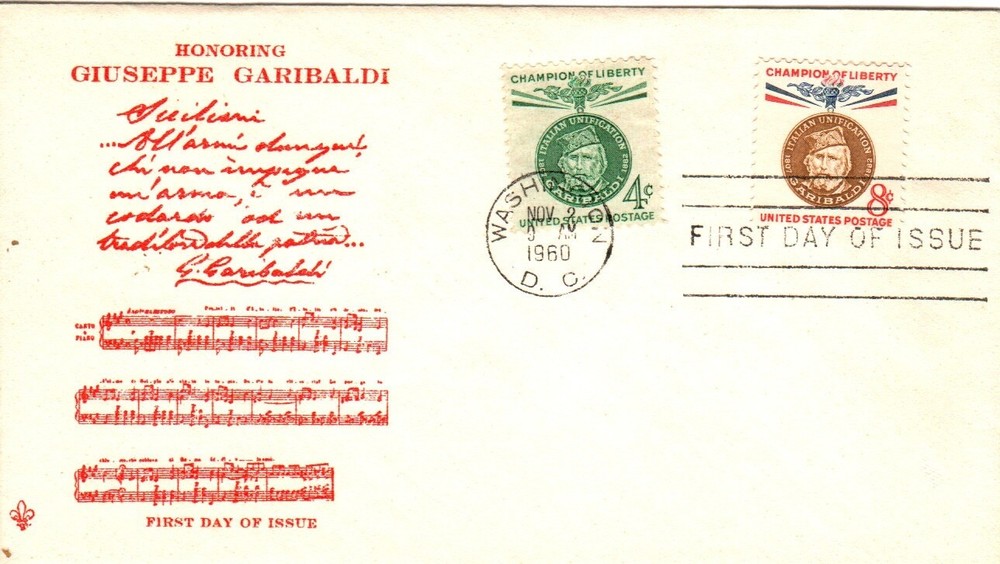 HONORING
GIUSEPPE GARIBALDI
Siciliani
...All'armi dunque!
chi non impugna
un'arma, è un
codardo od un
traditore della patria...
G. Garibaldi
CANTO
E
PIANO
FIRST DAY OF ISSUE
CHAMPION OF LIBERTY
1807 ITALIAN UNIFICATION 1882
GARIBALDI
4¢
UNITED STATES POSTAGE
WASHINGTON
NOV 2
9 AM
1960
D. C.
CHAMPION OF LIBERTY
1807 ITALIAN UNIFICATION 1882
GARIBALDI
8¢
UNITED STATES POSTAGE
FIRST DAY OF ISSUE